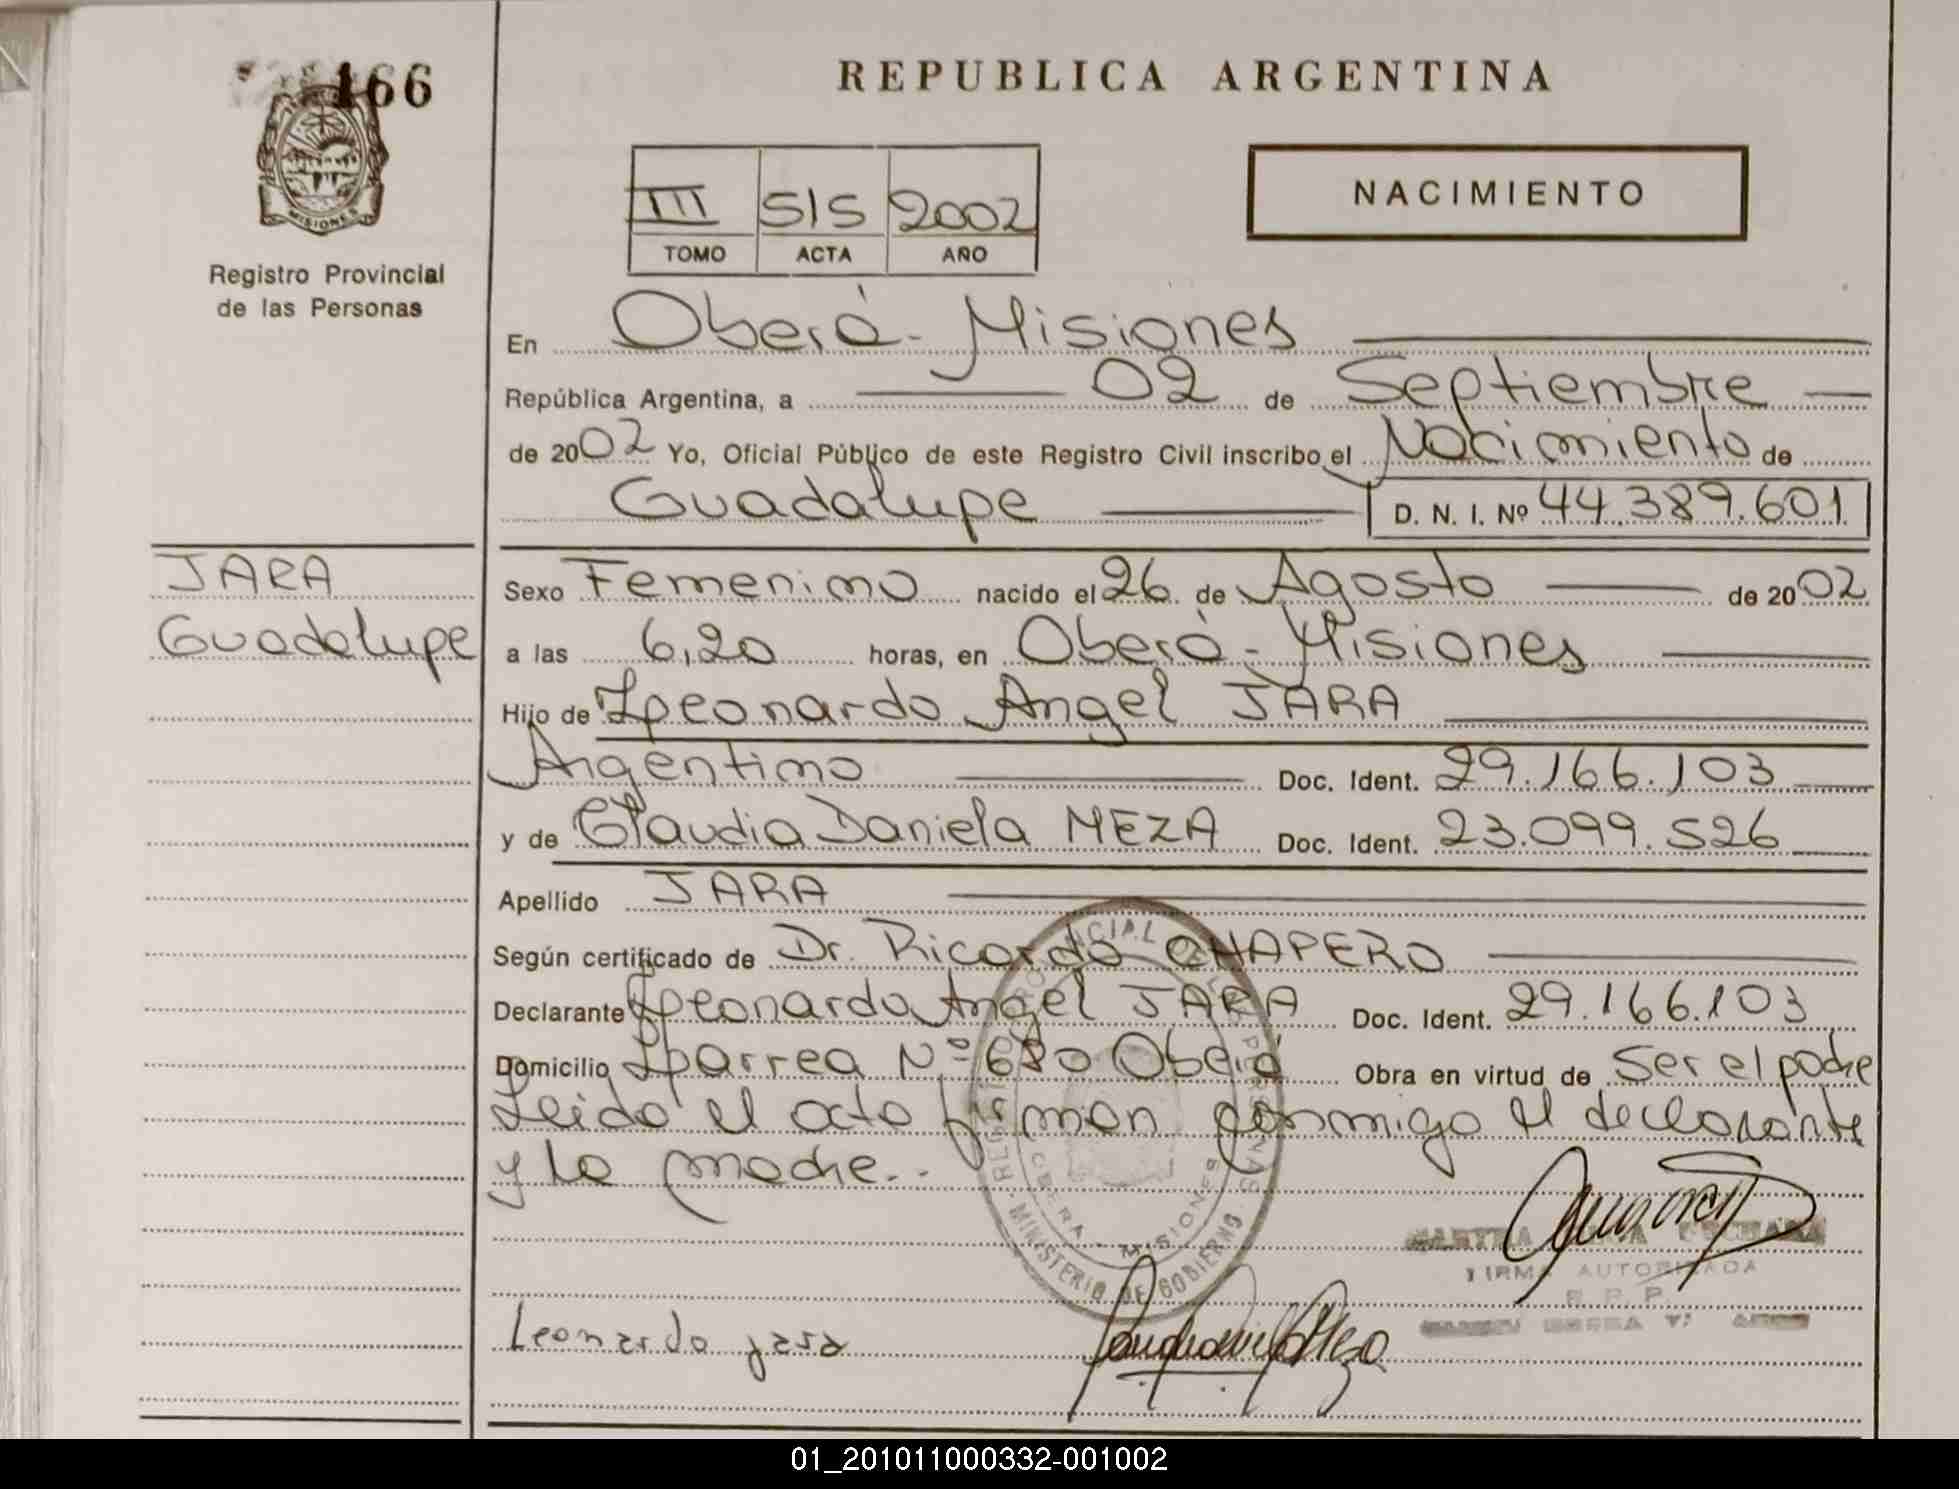 166
MISIONES
Registro Provincial
de las Personas
REPUBLICA ARGENTINA
III 515 2002
TOMO ACTA AÑO
NACIMIENTO
En Oberá - Misiones
República Argentina, a 02 de Septiembre
de 2002 Yo, Oficial Público de este Registro Civil inscribo el Nacimiento de
Guadalupe D. N. I. Nº 44.389.601
JARA
Guadalupe
Sexo Femenino nacido el 26 de Agosto de 2002
a las 6,20 horas, en Oberá - Misiones
Hijo de Leonardo Angel JARA
Argentino Doc. Ident. 29.166.103
y de Claudia Daniela MEZA Doc. Ident. 23.099.526
Apellido JARA
Según certificado de Dr. Ricardo CHAPERO
Declarante Leonardo Angel JARA Doc. Ident. 29.166.103
Domicilio Larrea Nº 680 Oberá Obra en virtud de ser el padre
Leida el acta firman conmigo el declarante
y la madre..
MINISTERIO DE GOBIERNO
OBERA - MISIONES
FIRMA AUTORIZADA
R. P. P.
Leonardo jara
01_201011000332-001002